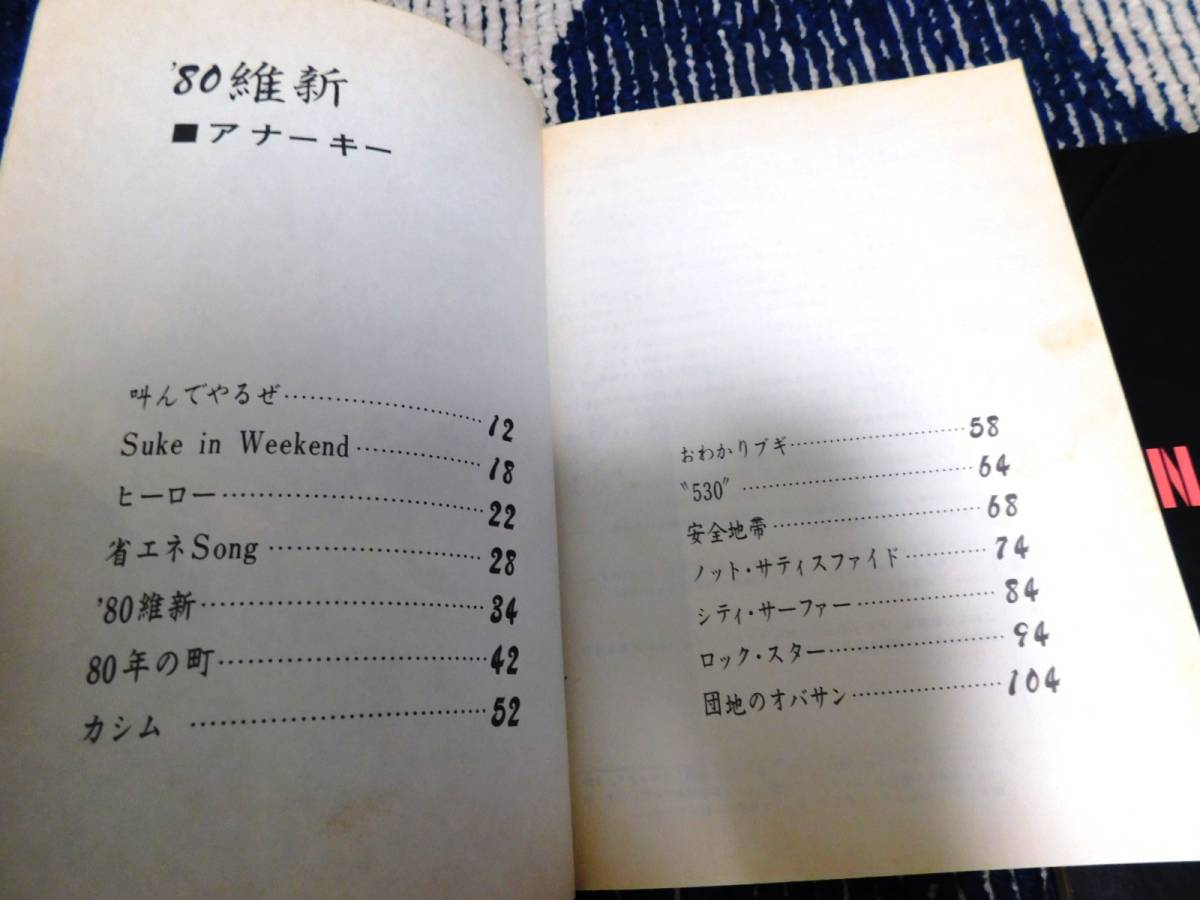 '80維新
■アナーキー
叫んでやるぜ……………………12
Suke in Weekend……………18
ヒーロー…………………………22
省エネSong……………………28
'80維新…………………………34
80年の町…………………………42
カシム …………………………52
おわかりブギ……………………58
〝530〞 …………………………64
安全地帯…………………………68
ノット・サティスファイド…………74
シティ・サーファー………………84
ロック・スター……………………94
団地のオバサン…………………104
N